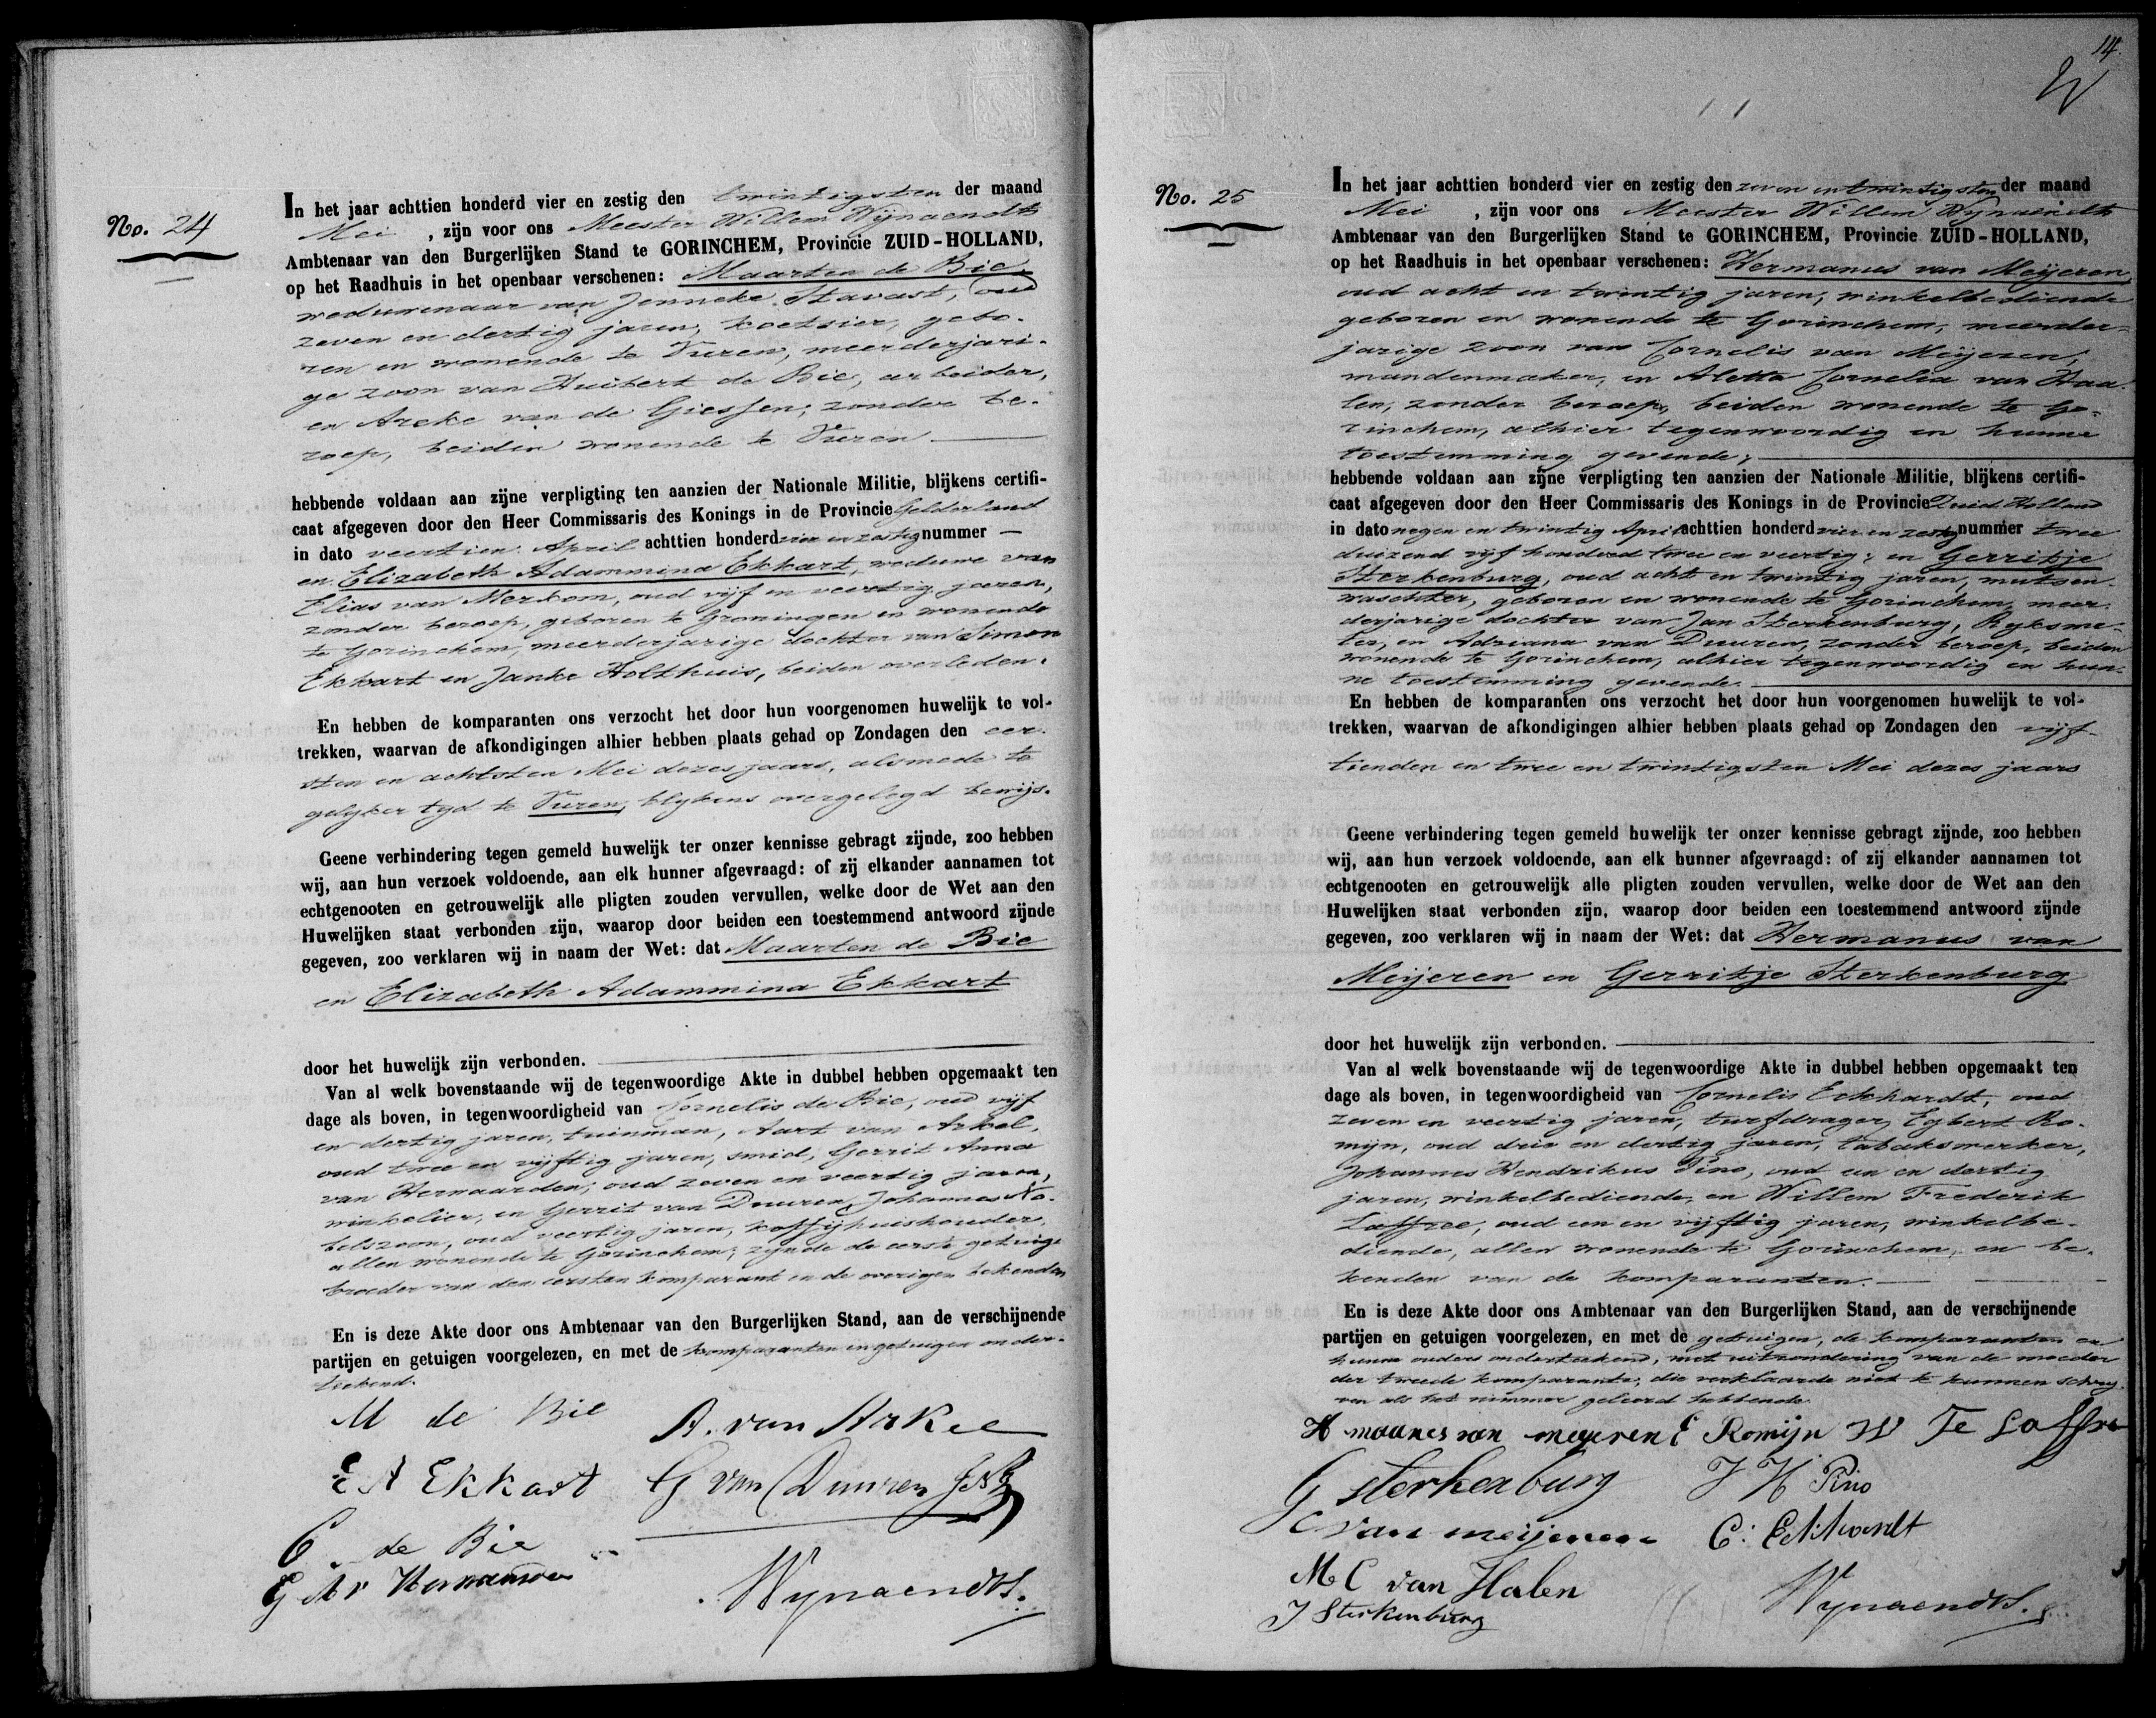 No. 24
In het jaar achttien honderd vier en zestig den twintigsten der maand
Mei , zijn voor ons Meester Willem Wijnaendts
Ambtenaar van den Burgerlijken Stand te GORINCHEM, Provincie ZUID-HOLLAND,
op het Raadhuis in het openbaar verschenen: Maarten de Bie,
weduwenaar van Jenneke Stavast, oud
zeven en dertig jaren, koetsier, gebo-
ren en wonende te Vuren, meerderjari-
ge zoon van Huibert de Bie, arbeider,
en Areke van de Giessen, zonder be-
roep, beiden wonende te Vuren
hebbende voldaan aan zijne verpligting ten aanzien der Nationale Militie, blijkens certifi-
caat afgegeven door den Heer Commissaris des Konings in de Provincie Gelderland
in dato veertien April achttien honderd vier en zestig nummer —
en Elizabeth Adammina Ekkart, weduwe van
Elias van Merkom, oud vijf en veertig jaren,
zonder beroep, geboren te Groningen en wonende
te Gorinchem, meerderjarige dochter van Simon
Ekkart en Janke Holthuis, beiden overleden.
En hebben de komparanten ons verzocht het door hun voorgenomen huwelijk te vol-
trekken, waarvan de afkondigingen alhier hebben plaats gehad op Zondagen den eer-
sten en achtsten Mei dezes jaars, alsmede te
gelijker tyd te Vuren, blykens overgelegd bewijs.
Geene verhindering tegen gemeld huwelijk ter onzer kennisse gebragt zijnde, zoo hebben
wij, aan hun verzoek voldoende, aan elk hunner afgevraagd: of zij elkander aannamen tot
echtgenooten en getrouwelijk alle pligten zouden vervullen, welke door de Wet aan den
Huwelijken staat verbonden zijn, waarop door beiden een toestemmend antwoord zijnde
gegeven, zoo verklaren wij in naam der Wet: dat Maarten de Bie
en Elizabeth Adammina Ekkart
door het huwelijk zijn verbonden.
Van al welk bovenstaande wij de tegenwoordige Akte in dubbel hebben opgemaakt ten
dage als boven, in tegenwoordigheid van Cornelis de Bie, oud vijf
en dertig jaren, tuinman, Aart van Arkel,
oud twee en vijftig jaren, smid, Gerrit Anna
van Hernaarden, oud zeven en veertig jaren,
winkelier, en Gerrit van Duuren Johannes No-
belszoon, oud veertig jaren, koffijhuishouder,
allen wonende te Gorinchem, zynde de eerste getuige
broeder van den eersten komparant en de overigen bekenden
En is deze Akte door ons Ambtenaar van den Burgerlijken Stand, aan de verschijnende
partijen en getuigen voorgelezen, en met de komparanten en getuigen onder-
teekend.
M de Bie A. van Arkel
E A Ekkart G van Duuren JNz
C de Bie
G A v Hernaarden
Wynaendts.
14.
No. 25
In het jaar achttien honderd vier en zestig den zeven en twintigsten der maand
Mei , zijn voor ons Meester Willem Wynaendts
Ambtenaar van den Burgerlijken Stand te GORINCHEM, Provincie ZUID-HOLLAND,
op het Raadhuis in het openbaar verschenen: Hermanus van Meijeren,
oud acht en twintig jaren, winkelbediende
geboren en wonende te Gorinchem, meerder-
jarige zoon van Cornelis van Meijeren,
mandenmaker, en Aletta Cornelia van Haa-
len, zonder beroep, beiden wonende te Go-
rinchem, alhier tegenwoordig en hunne
toestemming gevende;
hebbende voldaan aan zijne verpligting ten aanzien der Nationale Militie, blijkens certifi-
caat afgegeven door den Heer Commissaris des Konings in de Provincie Zuid Holland
in dato negen en twintig April achttien honderd vier en zestig nummer twee
duizend vijf honderd twee en veertig; en Gerritje
Sterkenburg, oud acht en twintig jaren, mutsen-
waschter, geboren en wonende te Gorinchem, meer-
derjarige dochter van Jan Sterkenburg, Ryksme-
ter, en Adriana van Deuren, zonder beroep, beiden
wonende te Gorinchem, alhier tegenwoordig en hun-
ne toestemming gevende.
En hebben de komparanten ons verzocht het door hun voorgenomen huwelijk te vol-
trekken, waarvan de afkondigingen alhier hebben plaats gehad op Zondagen den vijf-
tienden en twee en twintigsten Mei dezes jaars
Geene verhindering tegen gemeld huwelijk ter onzer kennisse gebragt zijnde, zoo hebben
wij, aan hun verzoek voldoende, aan elk hunner afgevraagd: of zij elkander aannamen tot
echtgenooten en getrouwelijk alle pligten zouden vervullen, welke door de Wet aan den
Huwelijken staat verbonden zijn, waarop door beiden een toestemmend antwoord zijnde
gegeven, zoo verklaren wij in naam der Wet: dat Hermanus van
Meijeren en Gerritje Sterkenburg
door het huwelijk zijn verbonden.
Van al welk bovenstaande wij de tegenwoordige Akte in dubbel hebben opgemaakt ten
dage als boven, in tegenwoordigheid van Cornelis Eckhardt, oud
zeven en veertig jaren, turfdrager, Egbert Ro-
mijn, oud drie en dertig jaren, tabakswerker,
Johannes Hendrikus Pino, oud een en dertig
jaren, winkelbediende, en Willem Frederik
Laffree, oud een en vijftig jaren, winkelbe-
diende, allen wonende te Gorinchem, en be-
kenden van de komparanten.
En is deze Akte door ons Ambtenaar van den Burgerlijken Stand, aan de verschijnende
partijen en getuigen voorgelezen, en met de getuigen, de komparanten en
hunne ouders onderteekend, met uitzondering van de moeder
der tweede komparante, die verklaarde niet te kunnen schry-
ven als het nimmer geleerd hebbende.
H maanes van meyeren E Romijn W Fe Laffre
G Sterkenburg J H Pino
C van meijeren C: Eckhardt
M C van Halen
J Sterkenburg
Wynaendts.